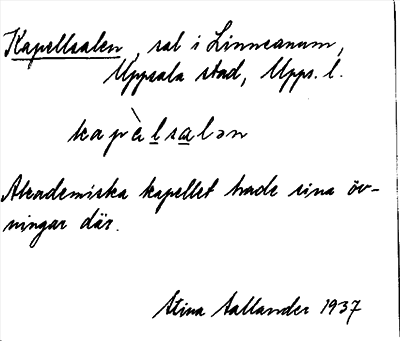 Kapellsalen, sal i Linneanum,
Uppsala stad, Upps. l.
kapàlsalən
Akademiska kapellet hade sina öv-
ningar där.
Stina Sallander 1937